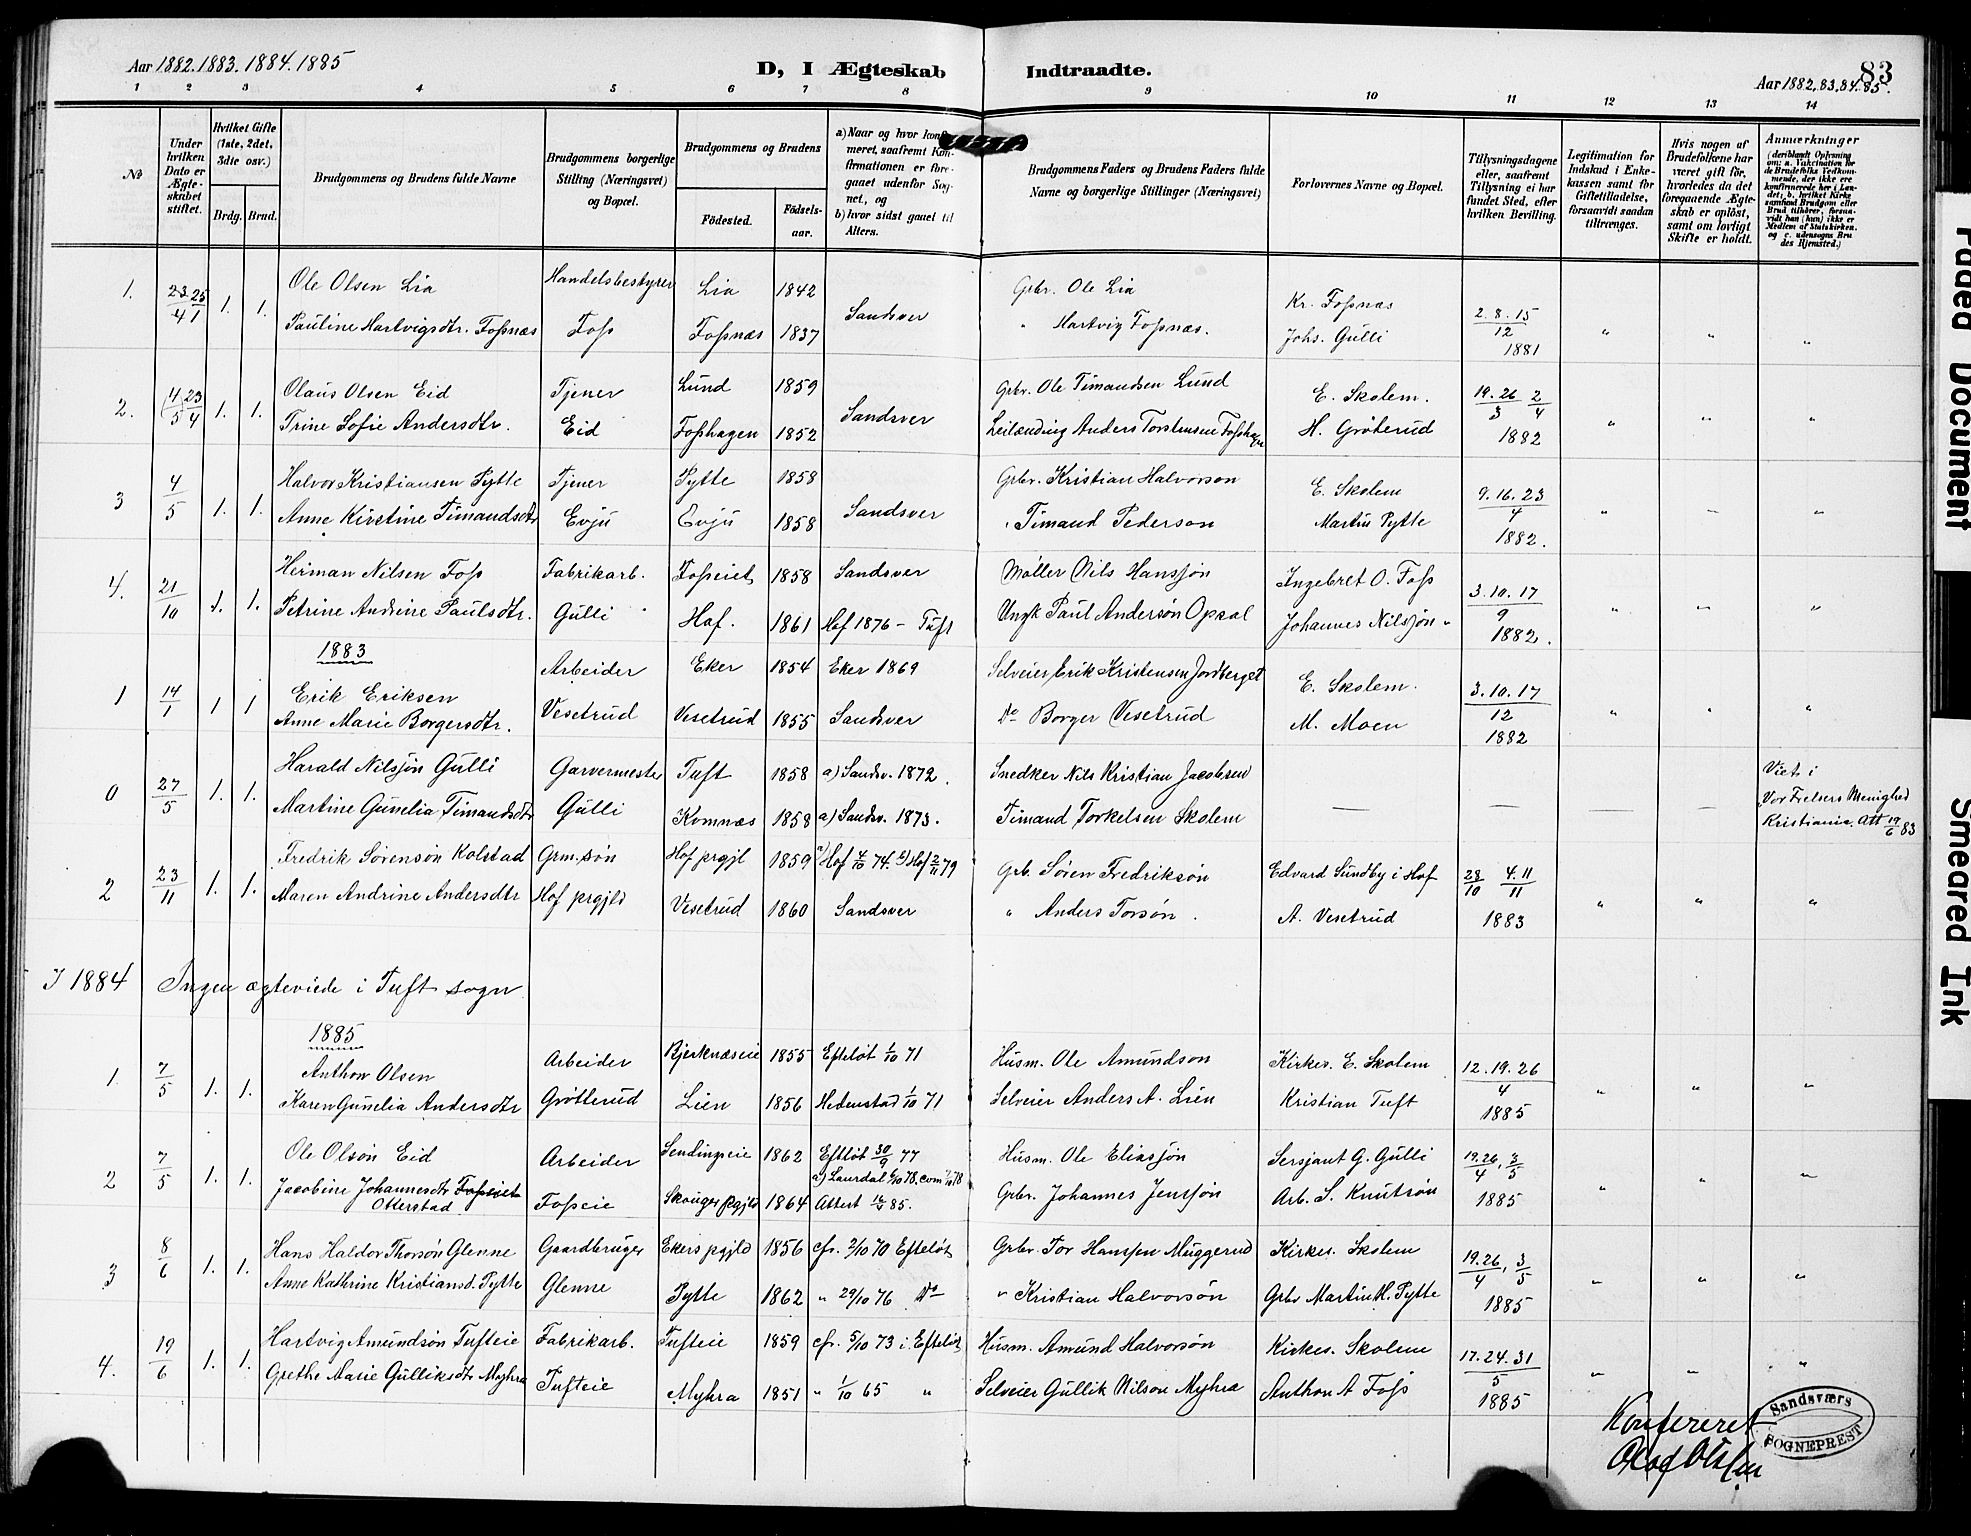 Aar 1882. 1883. 1884. 1885
D, I Ægteskab Indtraadte.
83
Aar 1882, 83, 84. 85.
1 2 3 4 5 6 7 8 9 10 11 12 13 14
No
Under hvilken Dato er Ægteskabet stiftet.
Hvilket Gifte (1ste, 2det, 3die osv.)
Brdg. Brud.
Brudgommens og Brudens fulde Navne
Brudgommens borgerlige Stilling (Næringsvei) og Bopæl.
Brudgommens og Brudens
Födested. Födselsaar.
a) Naar og hvor konfirmeret, saafremt Konfirmationen er foregaaet udenfor Sognet, og
b) hvor sidst gaaet til Alters.
Brudgommens Faders og Brudens Faders fulde Navne og borgerlige Stillinger (Næringsvei)
Forlovernes Navne og Bopæl.
Tillysningsdagene eller, saafremt Tillysning ei har fundet Sted, efter hvilken Bevilling.
Legitimation for Indskud i Enkekassen samt for Giftetilladelse, forsaavidt saadan tiltrænges.
Hvis nogen af Brudefolkene har været gift för, hvorledes da det foregaaende Ægteskab er oplöst, samt om lovligt Skifte er holdt.
Anmærkninger
(deriblandt Oplysning om: a. Vakcination for de Brudefolks Vedkommende, der ikke ere konfirmerede her i Landet; b. hvilket Kirkesamfund Brudgom eller Brud tilhörer, forsaavidt han (hun) ikke er Medlem af Statskirken, og c. udensogns Brudes Hjemsted.)
1. 23/4 25/1 1. 1. Ole Olsen Lia Handelsbestyrer Lia 1842 Sandsver Grbr. Ole Lia Kr. Fossnæs 2. 8. 15/12 1881 " " "
Pauline Hartvigsdtr. Fossnæs Foss Fossnæs 1837 " Hartvig Fossnæs. Johs. Gulli
2. (4/5) 23/4 1. 1. Olaus Olsen Eid Tjener Lund 1859 Sandsver Grbr. Ole Timandsen Lund E. Skolem. 19. 26/3 2/4 1882 " " "
Trine Sofie Andersdtr. Eid Fosshagen 1852 Leilænding Anders Torstensen Fosshagen H. Gröterud
3 4/5 1. 1. Halvor Kristiansen Pytte Tjener Pytte 1858 Sandsver Grbr. Kristian Halvorson E. Skolem 9. 16. 23/4 1882. " " "
Anne Kirstine Timandsdtr Evju Evju 1858 " Timand Pederson Martin Pytte
4. 21/10 1. 1. Herman Nilsen Foss Fabrikarb. Fosseiet 1858 Sandsver Möller Nils Hanssön Ingebret O. Foss 3. 10. 17/9 1882. " " "
Petrine Andrine Paulsdtr. Gulli Hof. 1861 Hof 1876 - Tuft Ungk Paul Andersön Opsal Johannes Nilssön "
1883
1 14/1 1 1 Erik Eriksen Arbeider Eker 1854 Eker 1869 Selveier Erik Kristensen Jordberget E. Skolem. 3. 10. 17/12 1882 " " "
Anne Marie Borgersdtr. Vesetrud Vesetrud 1855 Sandsver Do Borger Vesetrud M. Moen
0 27/5 1. 1. Harald Nilssön Gulli Garvermester Tuft 1858 a) Sandsv. 1872. Snedker Nils Kristian Jacobsen — — — — Viet i Vor Frelsers Menighed Kristiania. Att 19/6 83
Martine Gunelia Timandsdtr Gulli Komnæs 1858 a) Sandsv. 1873. Timand Torkelsen Skolem
2 23/11 1. 1. Fredrik Sörensön Kolstad Grm. sön Hof prgjl 1859 a) Hof 4/10 74. b) Hof 2/11 79 Grb. Sören Fredriksön Edvard Sundby i Hof 28/10 4. 11/11 1883 " " "
Maren Andrine Andersdtr Hof prgjld Vesetrud 1860 Sandsver " Anders Torsön. A. Vesetrud
I 1884 Ingen ægteviede i Tuft sogn
1885
1. 7/5 1. 1. Anthon Olsen Arbeider Bjerknæseie 1855 Efteløt 1/10 71 Husm. Ole Amundson Kirkes. E. Skolem 12. 19. 26/4 1885 " " "
Karen Gunelia Andersdtr Grötterud Lien 1856 Hedenstad 1/10 71 Selveier Anders A. Lien Kristian Tuft
2 7/5 1. 1. Ole Olsön Eid Arbeider 1862 Efteløt 30/9 77 Husm. Ole Eliassön Sersjant G. Gulli 19. 26/4, 3/5 1885 " " "
Jacobine Johannesdtr Fosseiet Otterstad Fosseie Skouger prgjld 1864 a) Laurdal 6/10 78, com 7/10 78 Attest 85. Grbr. Johannes Jenssön Arb. S. Knutsön
3 8/6 1. 1. Hans Haldor Thorsön Glenne Gaardbruger Ekers pgjld 1856 cfr. 2/10 70 Efteløt Grbr. Tor Hanssen Muggerud Kirkes. Skolem 19. 26/4, 3/5 1885 " " "
Anne Kathrine Kristiansd. Pytte Glenne Pytte 1862 " 29/10 76 Do " Kristian Halvorsön Grbr Martin H. Pytte
4. 19/6 1. 1. Hartvig Amundsön Tufteie Fabrikarb. Tufteie 1859 cfr. 5/10 73 i Efteløt Husm. Amund Halvorsön Kirkes. Skolem 17. 24. 31/5 1885 " " "
Grethe Marie Gulliksdtr Myhra Tufteie Myhra 1851 " 1/10 65 " Selveier Gullik Nilson Myhra Anthon A Foss
Konfereret
Olaf Olsen
Sandsværs
SOGNEPREST
Faded Document
Smeared Ink